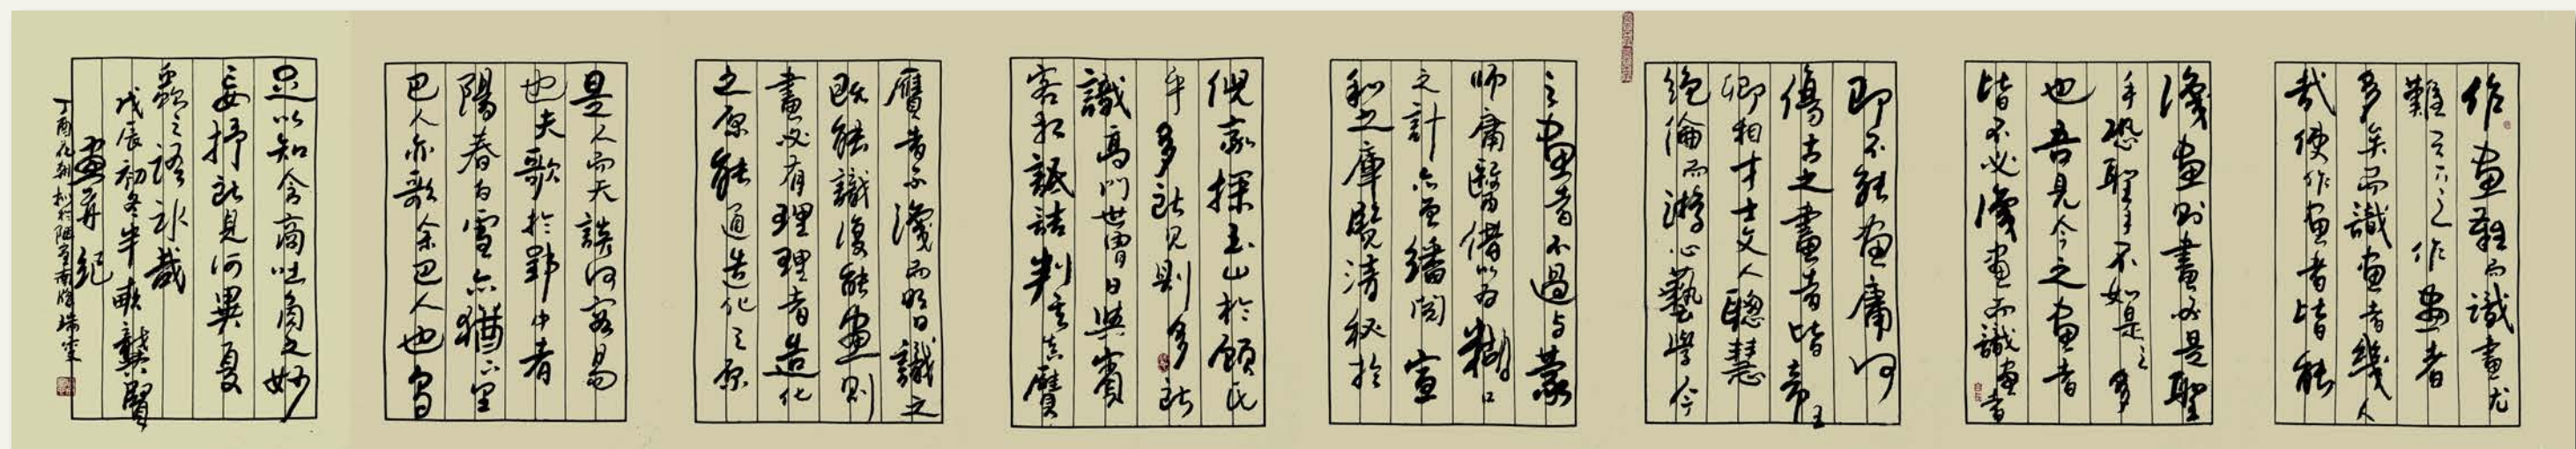 作画難而識画尤
難天下之作画者
多矣而識画者幾人
哉使作画者皆能
識画則畫必是聖
手恐聖手不如是之多
也吾見今之画者
皆不必識画而識画者
即不能画庸何
傷古之畫者皆帝王
卿相才士文人聰慧
絶倫而游心藝學今
之画者不過与蒙
師庸醫借以為糊口
之計亦而繙閲宣
和之庫覽清秘於
倪家探玉山於顧氏
乎多所見則多所
識高門世胄日與賓
客相詆詰判言真贋
贋者不識而明日識之
既能識復能画則
畫必有理理者造化
之原能通造化之原
是人而天談何容易
也夫歌於郢中者
陽春白雪亦猶下里
巴人亦歌余巴人也烏
足以知含商吐角之妙
妄抒所見何異夏
蟲之語冰哉
戊辰初冬半畝龔賢
画并紀